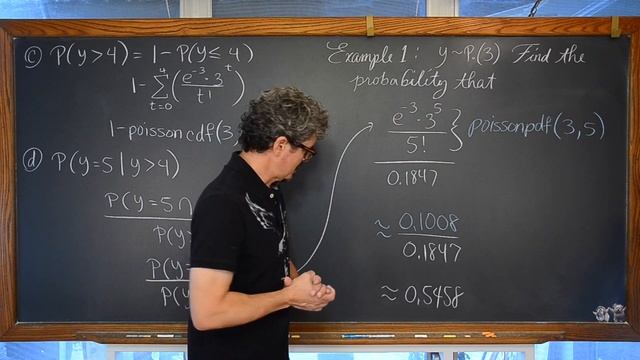 (c) P(y > 4) = 1 - P(y ≤ 4)
1 - ∑_{t=0}^{4} (e^{-3} · 3^t / t!)
1 - poissoncdf(3,
(d) P(y = 5 | y > 4)
P(y = 5 ∩
P(y >
P(y =
P(y
Example 1: y ~ P.(3) Find the
probability that
e^{-3} · 3^5
5!
0.1847
} poissonpdf(3, 5)
≈ 0.1008
0.1847
≈ 0.5458